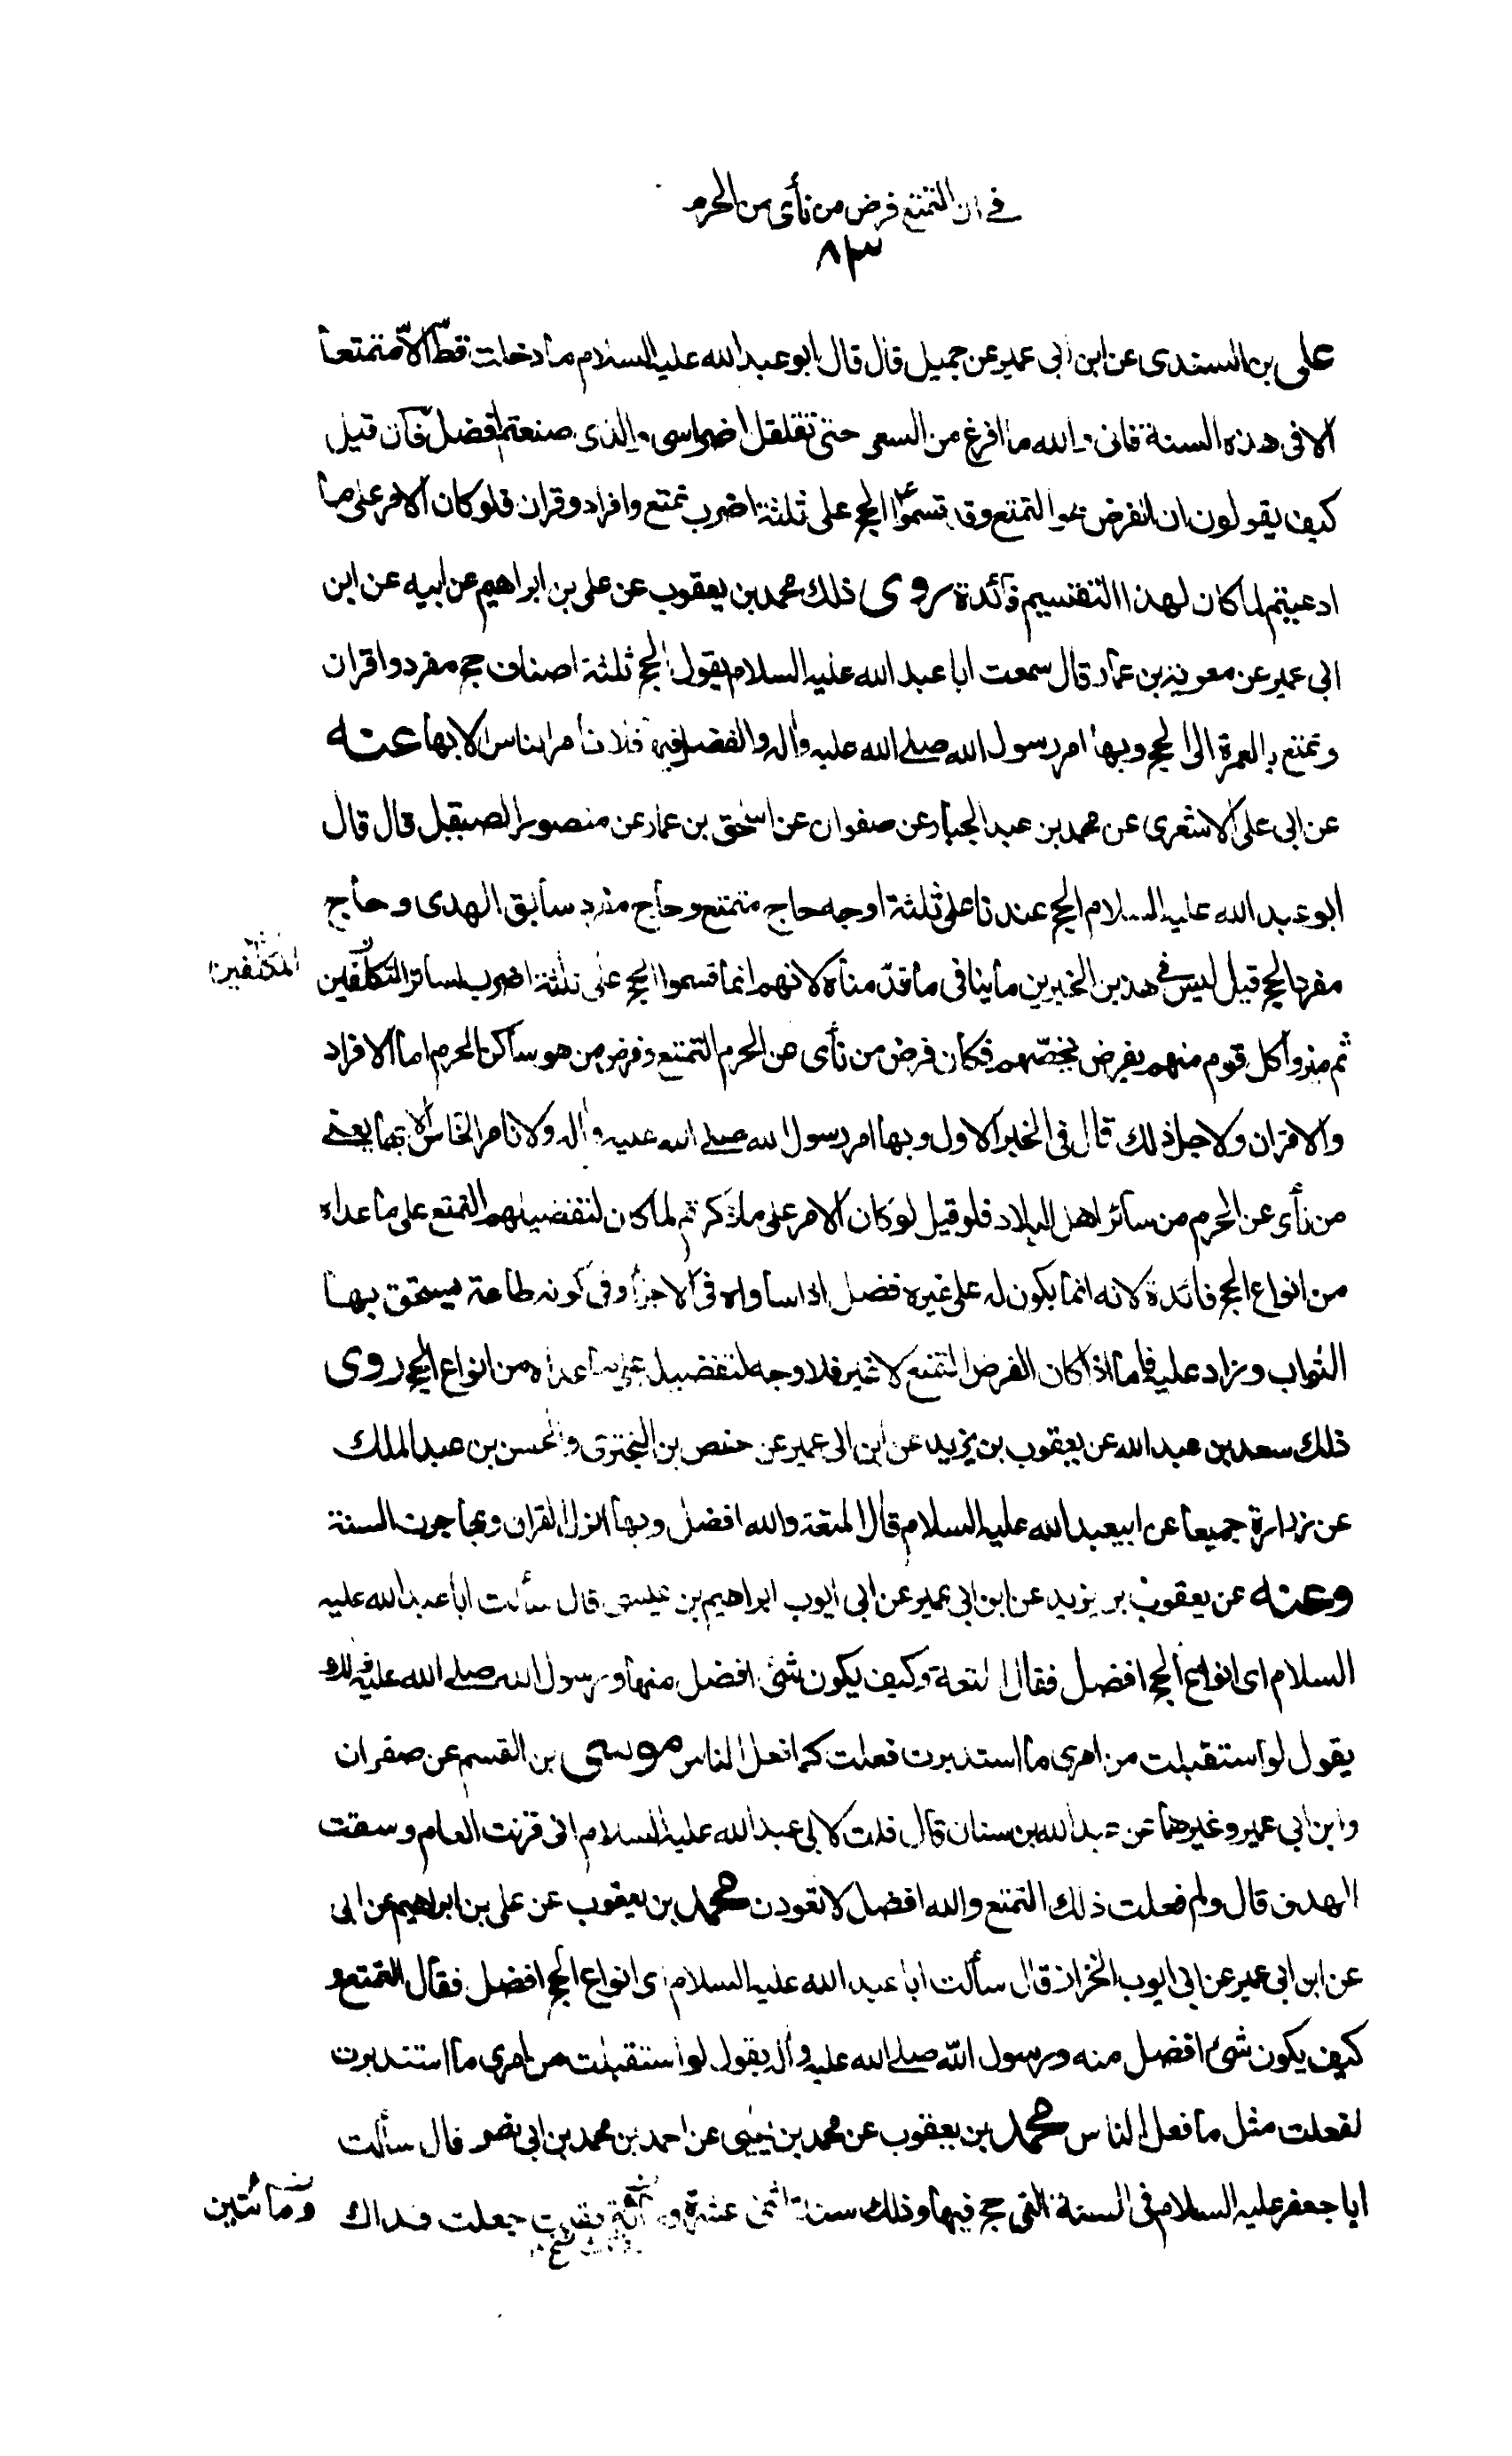 في ان التمتع فرض من نأى من الحرم
٨٣
على بن السندى عن ابن ابى عمير عن جميل قال قال ابو عبد الله عليه السلام ما دخلت قطّ الاّ متمتعا
الا فى هذه السنة فانى والله ما افرغ من السعى حتى تقلقل اضراسى والذى صنعتم افضل فان قيل
كيف يقولون ان الفرض هو التمتع وقد قسموا الحج على ثلثة اضرب تمتع وافراد وقران فلو كان الامر على ما
ادعيتم لما كان لهذا التقسيم فائدة روى ذلك محمد بن يعقوب عن على بن ابراهيم عن ابيه عن ابن
ابى عمير عن معوية بن عمار قال سمعت ابا عبد الله عليه السلام يقول الحج ثلثة اصناف حج مفرد واقران
وتمتع بالعمرة الى الحج وبها امر رسول الله صلى الله عليه واله والفضل فيها فلا نأمر الناس الا بها عنه
عن ابى على الاشعرى عن محمد بن عبد الجبار عن صفوان عن اسحق بن عمار عن منصور الصيقل قال قال
ابو عبد الله عليه السلام الحج عندنا على ثلثة اوجه حاج متمتع وحاج مفرد سائق الهدى وحاج
مفرد الحج قيل ليس في هذين الخبرين ما ينافى ما قدّمناه لانهم انما قسموا الحج على ثلثة اضرب لسائر التكلّفين
المكلفين
ثم ميزوا كل قوم منهم بفرض يخصّهم فكان فرض من نأى عن الحرم التمتع وفرض من هو ساكن الحرم اما الافراد
والاقران ولاجل ذلك قال فى الخبر الاول وبها امر رسول الله صلى الله عليه واله ولا نامر الناس الا بها يعنى
من نأى عن الحرم من سائر اهل البلاد فلو قيل لو كان الامر على ما ذكرتم لما كان لتفضيلهم التمتع على ما عداه
من انواع الحج فائدة لانه انما يكون له على غيره فضل اذا ساواه فى الاجزأ وفى كونه طاعة يستحق بها
الثواب وزاد عليه فاما اذا كان الفرض التمتع لا غير فلا وجه لتفضيله على ما عداه من انواع الحج روى
ذلك سعد بن عبد الله عن يعقوب بن يزيد عن ابن ابى عمير عن حفص بن البخترى والحسن بن عبد الملك
عن زرارة جميعا عن ابيعبد الله عليه السلام قال المتعة والله افضل وبها انزل القران وبها جرت السنة
وعنه عن يعقوب بن يزيد عن ابن ابى عمير عن ابى ايوب ابراهيم بن عيسى قال سألت ابا عبد الله عليه
السلام اى انواع الحج افضل فقال المتعة وكيف يكون شئ افضل منها ورسول الله صلى الله عليه واله
يقول لو استقبلت من امرى ما استدبرت فعلت كما فعل الناس موسى بن القسم عن صفوان
وابن ابى عمير وغيرهما عن عبد الله بن سنان قال قلت لابى عبد الله عليه السلام انى قرنت العام وسقت
الهدى قال ولم فعلت ذلك التمتع والله افضل لا تعودن محمد بن يعقوب عن على بن ابراهيم عن ابى
عن ابن ابى عمير عن ابى ايوب الخزاز قال سألت ابا عبد الله عليه السلام اى انواع الحج افضل فقال التمتع و
كيف يكون شئ افضل منه ورسول الله صلى الله عليه واله يقول لو استقبلت من امرى ما استدبرت
لفعلت مثل ما فعل الناس محمد بن يعقوب عن محمد بن يحيى عن احمد بن محمد بن ابى نصر قال سألت
ابا جعفر عليه السلام فى السنة التى حج فيها وذلك سنة اثنى عشرة فقلت جعلت فداك
ومائتين